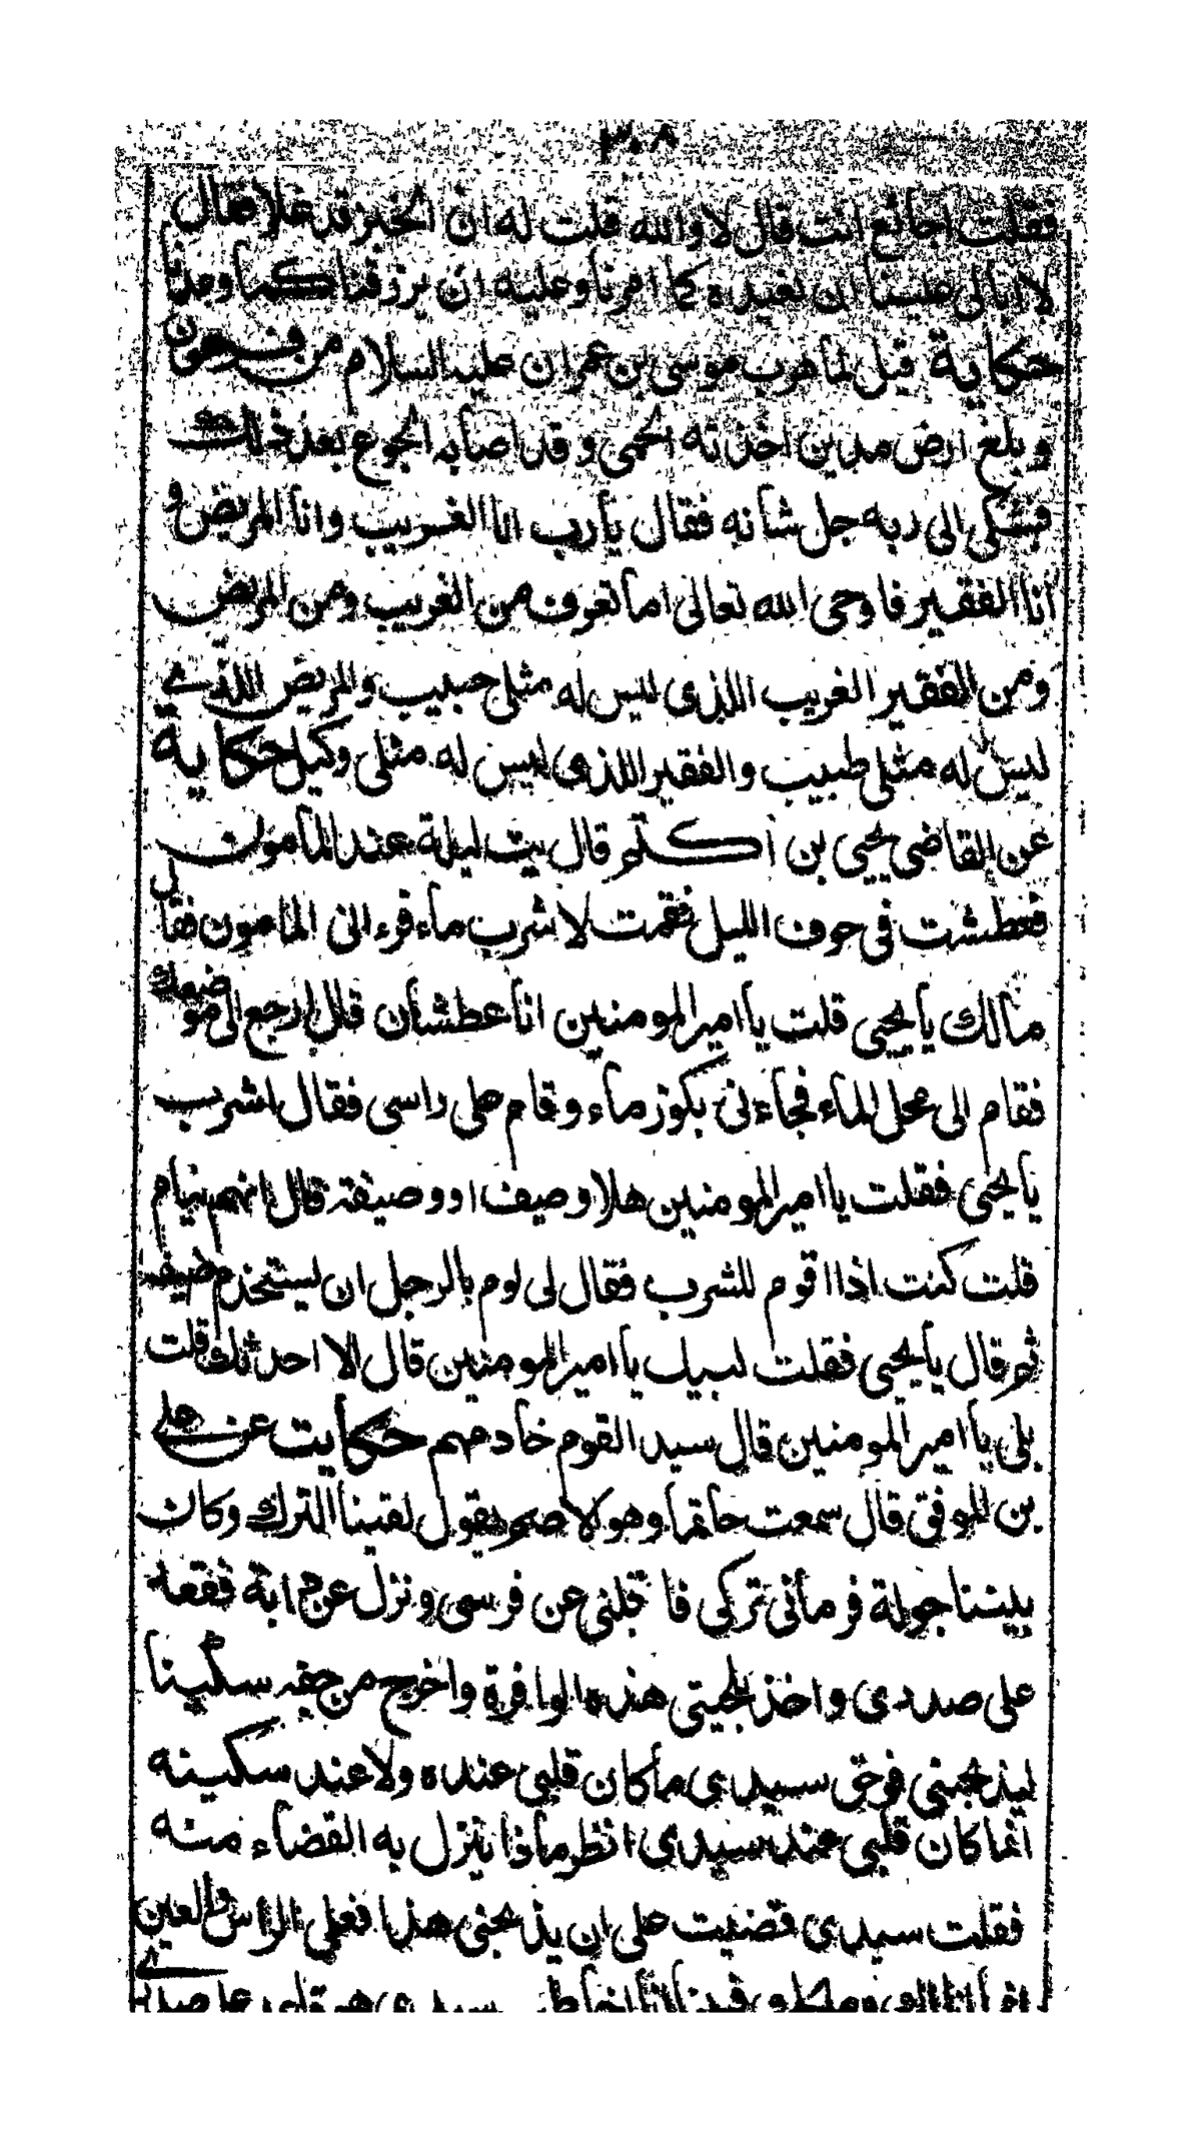 ٣٠٨
فقلت اجائع انت قال لا والله قلت له ان الخبز قد غلا فقال
لا ابالى علينا ان نعبده كما امرنا وعليه ان يرزقنا كما وعدنا
حكاية قيل لما هرب موسى بن عمران عليه السلام من فرعون
وبلغ ارض مدين اخذته الحمى وقد اصابه الجوع بعد ذلك
فشكى الى ربه جل شأنه فقال يأرب انا الغريب وانا المريض و
انا الفقير فاوحى الله تعالى اما تعرف من الغريب ومن المريض
ومن الفقير الغريب اللذى ليس له مثلى حبيب والمريض اللذي
ليس له مثلى طبيب والفقير اللذى ليس له مثلى وكيل حكاية
عن القاضى يحيى بن اكثم قال بت ليلة عند المأمون
فعطشت فى جوف الليل فقمت لاشرب ماء فرءانى المامون فقال
مالك يأيحيى قلت يا امير المومنين انا عطشان قال ارجع الى موضعك
فقام الى محل الماء فجاءنى بكوز ماء وقام على راسى فقال اشرب
يأيحيى فقلت يا امير المومنين هلا وصيف او وصيفة قال انهم نيام
قلت كنت اذا اقوم للشرب فقال لى لوم بالرجل ان يستخدم ضيفه
ثم قال يأيحيى فقلت لبيك يا امير المومنين قال الا احدثك قلت
بلى يا امير المومنين قال سيد القوم خادمهم حكايت عن على
بن الموفق قال سمعت حاتما وهو لاصم يقول لقينا الترك وكان
بيننا جولة فرمأنى تركى فا قلبنى عن فرسى ونزل عن دابة فقعد
على صددى واخذ بلحيتى هذه الوافرة واخرج من جفه سكينا
ليذبحنى فوحق سيدى مأكان قلبى عنده ولا عند سكينه
انما كان قلبى عند سيدى انظر ماذا ينزل به القضاء منه
فقلت سيدى قضيت على ان يذبحنى هذا فعلى الراس والعين